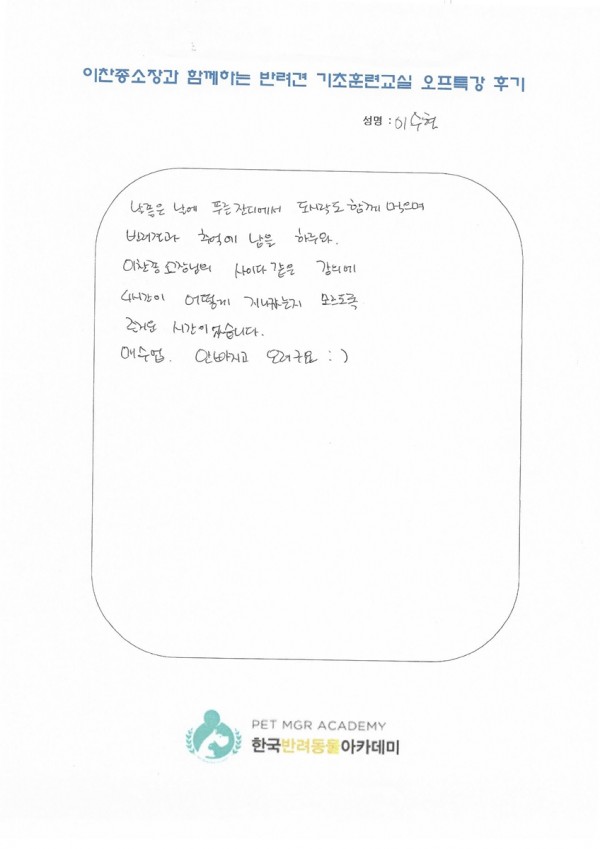 이찬종소장과 함께하는 반려견 기초훈련교실 오프특강 후기
성명 : 이수현
날좋은 날에 푸른잔디에서 도시락도 함께 먹으며
반려견과 추억에 남을 하루와.
이찬종 소장님의 사이다 같은 강의에
4시간이 어떻게 지나갔는지 모르도록
즐거운 시간이었습니다.
매수업. 안빠지고 오려구요 : )
PET MGR ACADEMY
한국반려동물아카데미